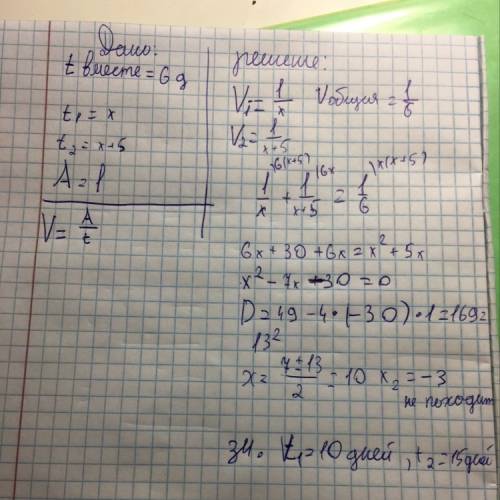 Дано:
t вместе = 6 д
t₁ = x
t₂ = x+5
A = 1
V = A/t
решение:
V₁ = 1/x V общая = 1/6
V₂ = 1/(x+5)
1/x |6(x+5) + 1/(x+5) |6x = 1/6 |x(x+5)
6x + 30 + 6x = x² + 5x
x² - 7x - 30 = 0
D = 49 - 4 • (-30) • 1 = 169 =
13²
x = (7 ± 13)/2 = 10 x₂ = -3
не походит
Зн. t₁ = 10 дней, t₂ = 15 дней